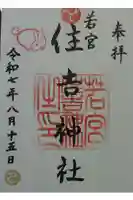 奉拝
若宮
住吉神社
令和七年八月十五日